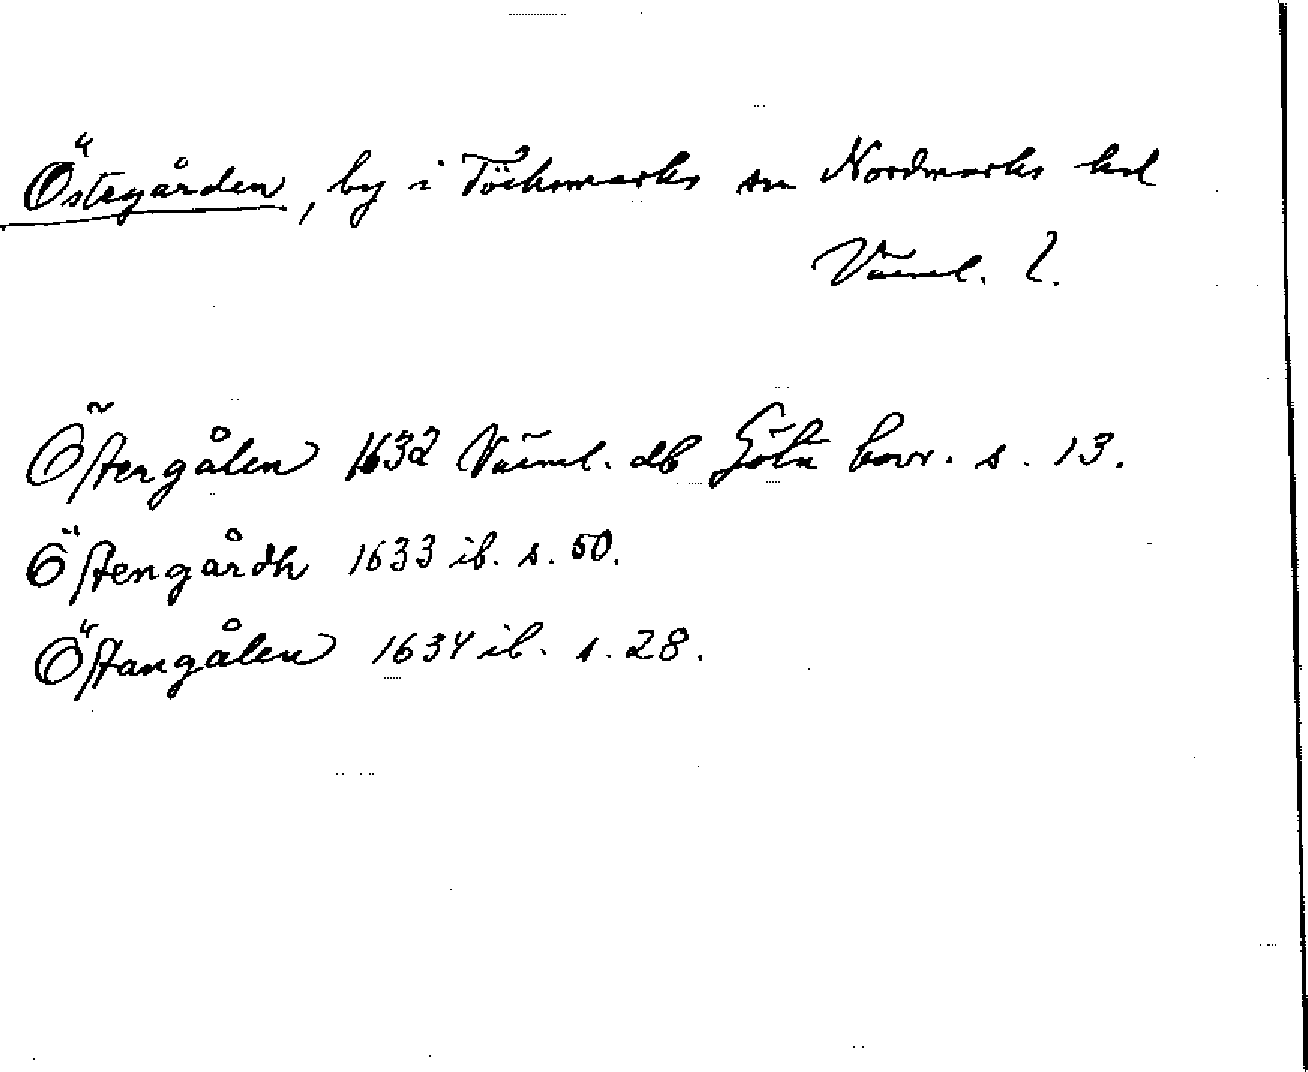 Östegården, by i Töcksmarks sn Nordmarks hd
Värml. l.
Östengålen 1632 Värml. db Göta hovr. s. 13.
Östengårdh 1633 ib. s. 50.
Östangålen 1634 ib. s. 28.